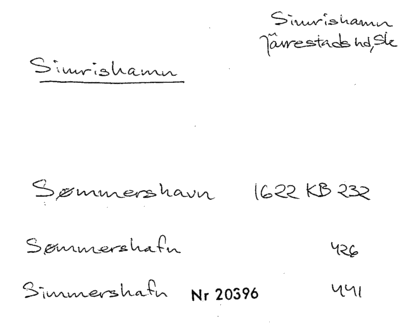 Simrishamn
Järrestads hd, Sk
Simrishamn
Sømmershavn 1622 KB 232
Sømmershafn 426
Simmershafn Nr 20396 441